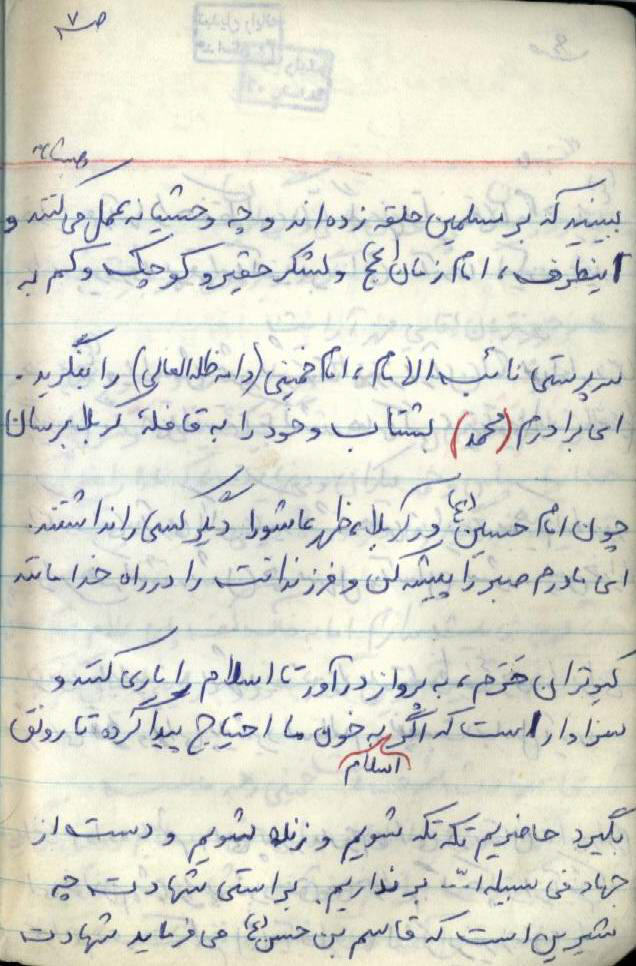 ص ۷
وصیتنامه
ببینید که بر مسلمین حلقه زده‌اند و چه وحشیانه عمل می‌کنند و
اینطرف، امام زمان (عج) و لشکر حقیر و کوچک و کم به
سرپرستی نائب الامام، امام خمینی (دامه ظله العالی) را بنگرید.
ای برادرم (محمد) بشتاب و خود را به قافلهٔ کربلا برسان
چون امام حسین (ع) در کربلا، ظهر عاشورا دیگر کسی را نداشتند.
ای مادرم صبر را پیشه کن و فرزندانت را در راه خدا مانند
کبوتران حَرَم، به پرواز درآور تا اسلام را یاری کنند و
سزاوار است که اگر به خون ما احتیاج پیدا کرده تا رونق
اسلام
بگیرد حاضریم تکه تکه شویم و زنده شویم و دست از
جهاد فی سبیل ا... بر نداریم. براستی شهادت چه
شیرین است که قاسم بن حسن (ع) می فرماید شهادت